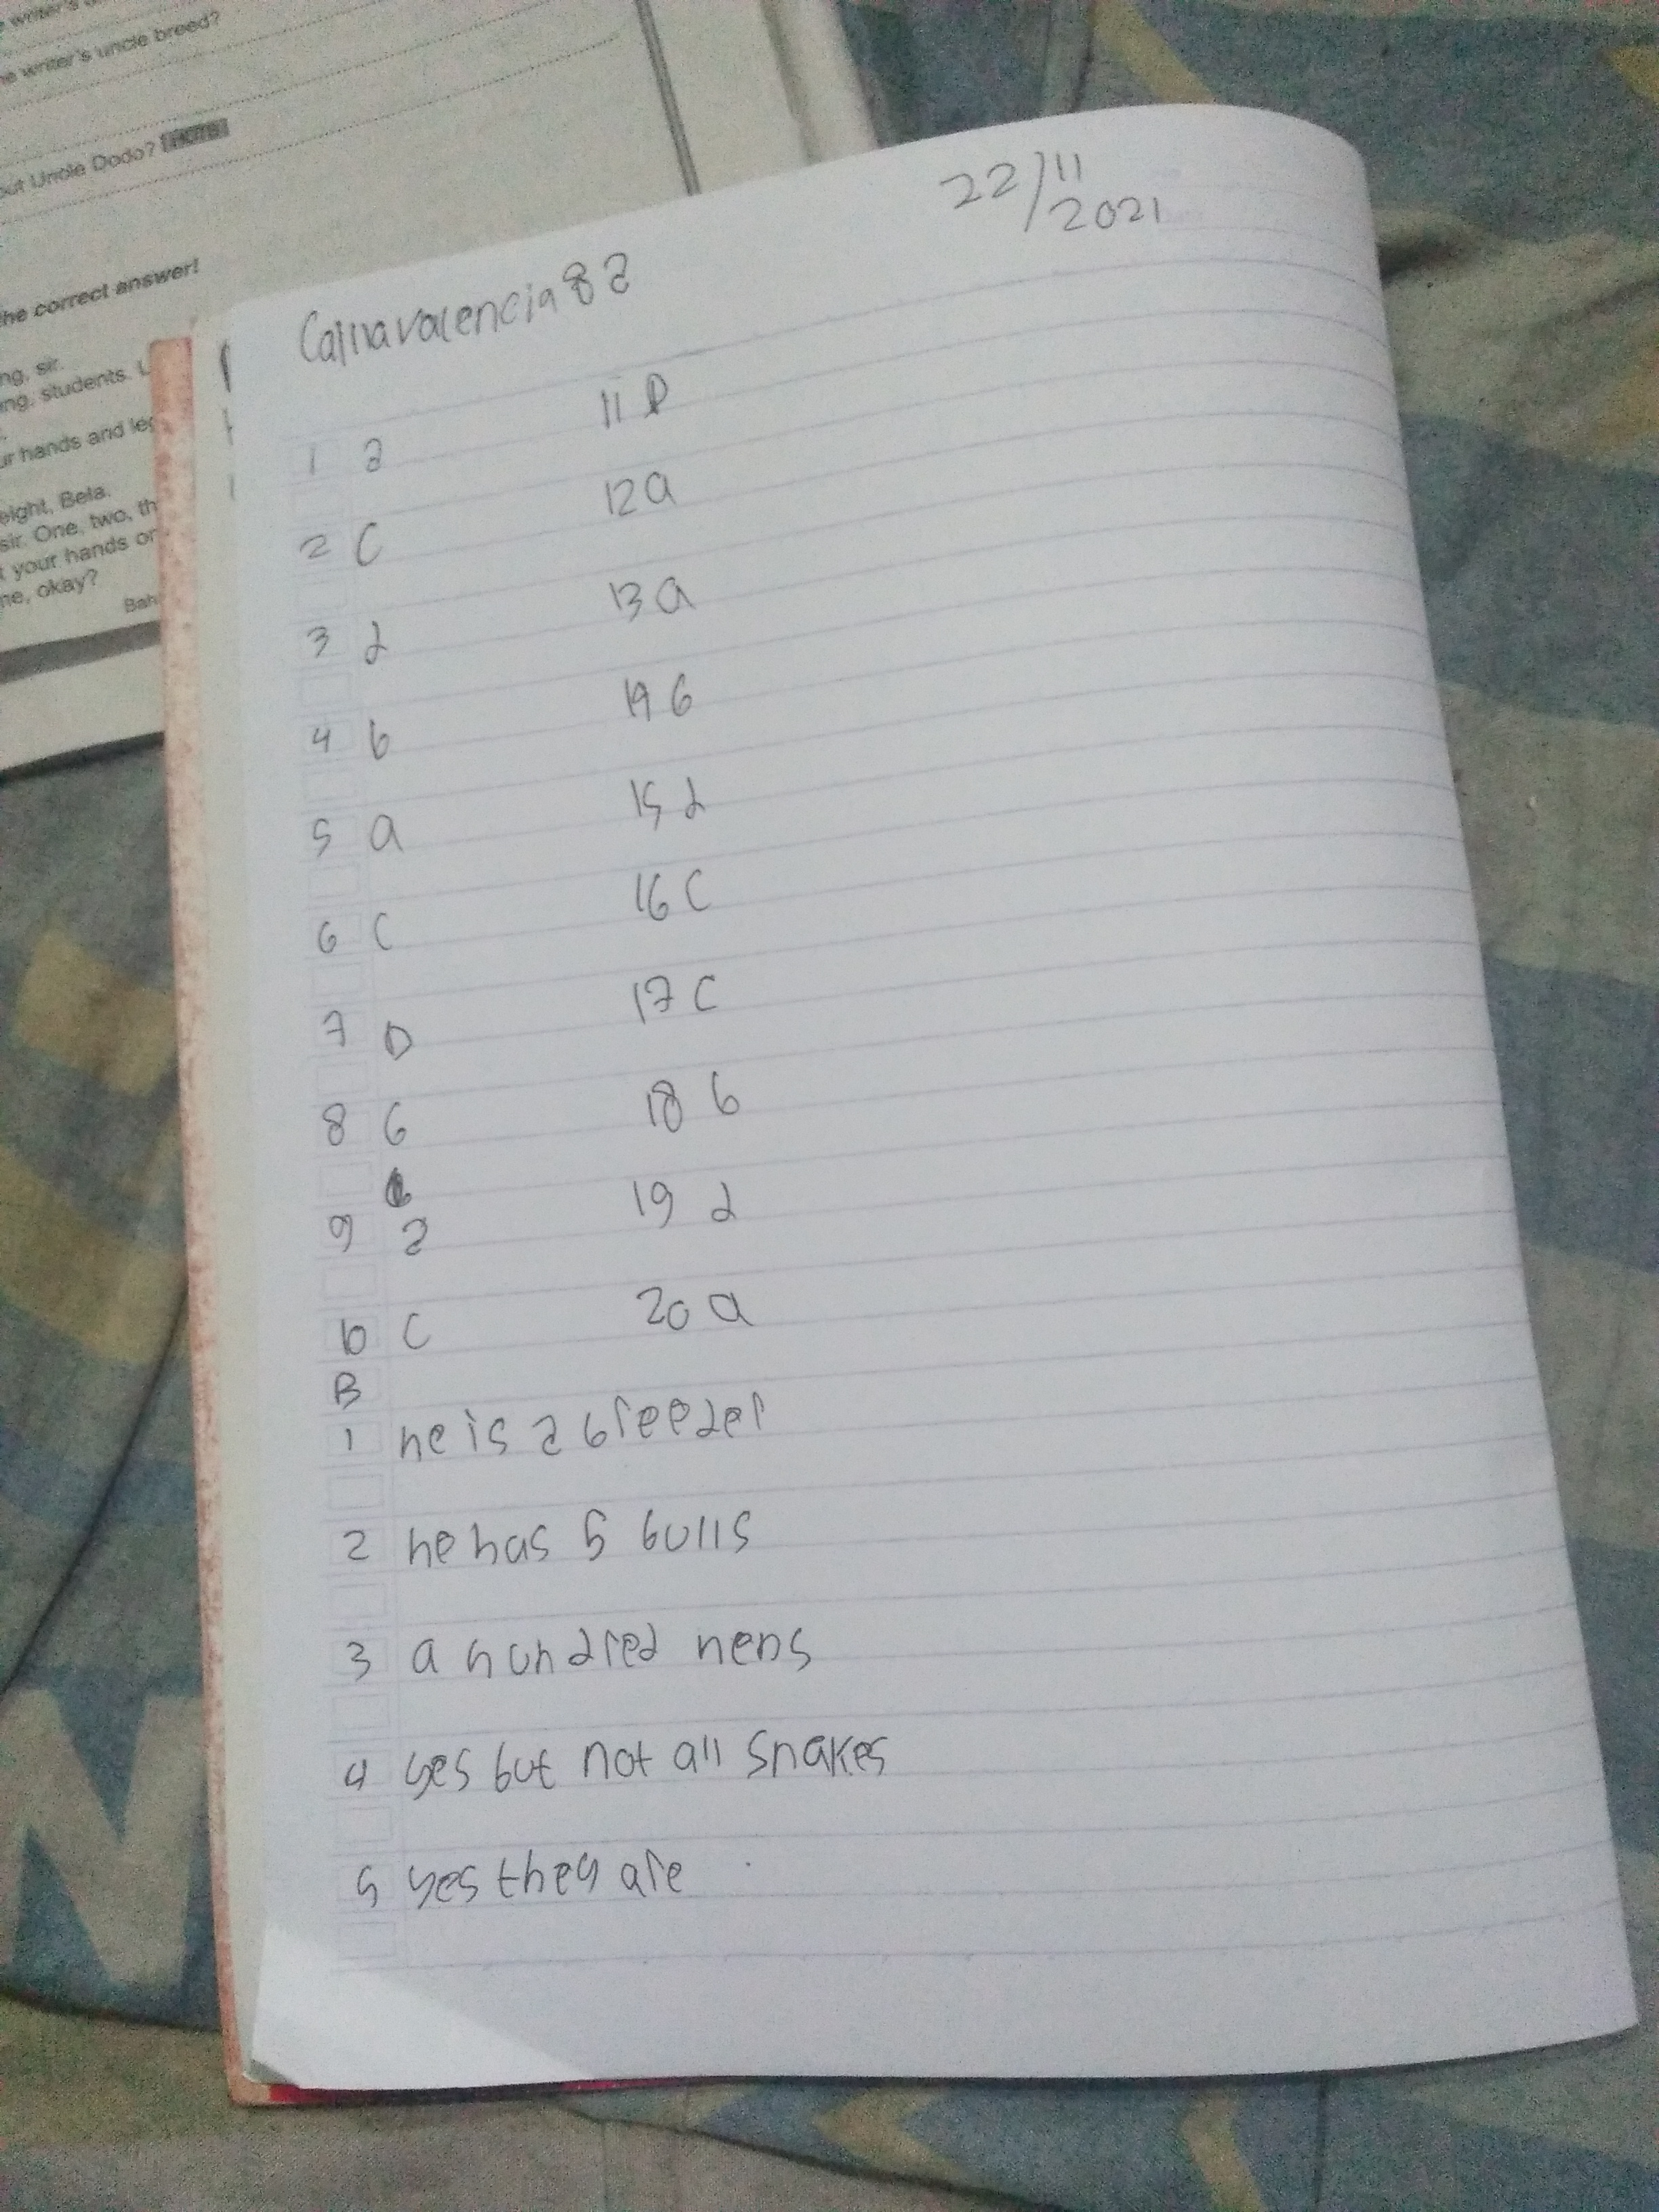 writer's
he writer's uncle breed?
out Uncle Dodo? HOTS
the correct answer!
ng, sir.
ing, students.
ur hands and leg
eight, Bela.
sir. One, two, th
t your hands or
me, okay?
Bah
22/11
2021
8a
1 a
2 C
3 d
4 b
5 a
6 C
7 D
8 b
9 a
10 C
11 D
12 a
13 a
14 b
15 d
16 C
17 C
18 b
19 d
20 a
B
1 he is a breeder
2 he has 5 bulls
3 a hundred hens
4 yes but not all snakes
5 yes they are